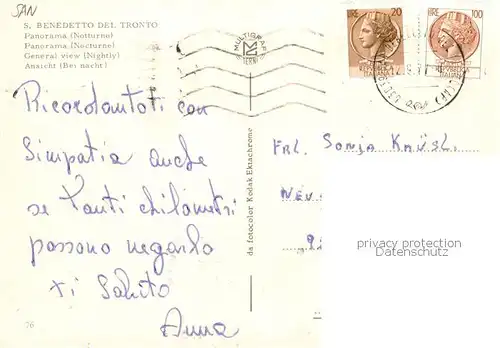 SAN
S. BENEDETTO DEL TRONTO
Panorama (Notturno)
Panorama (Nocturne)
General view (Nightly)
Ansicht (Bei nacht)
MULTIGRAF
20
LIRE 100
Ricordantoti con
Simpatia anche
se tanti chilometri
possono negarlo
ti Saluto
Anna
da fotocolor Kodak Ektachrome
Frl. Sonja
privacy protection
Datenschutz
76